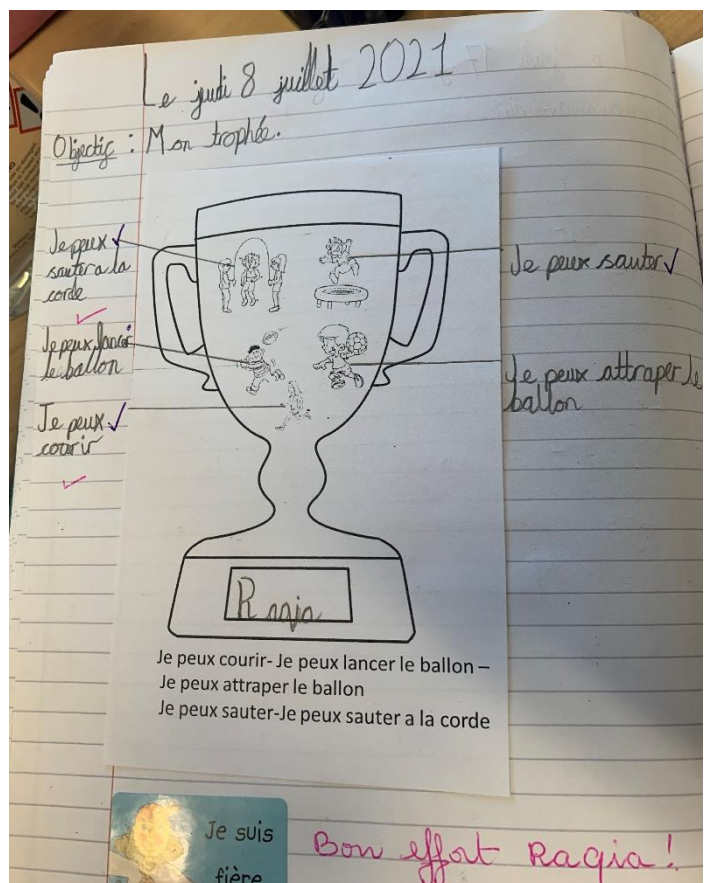 Le judi 8 juillet 2021
Objectif : Mon trophée.
Je peux
sauter a la
corde
Je peux lancer
le ballon
Je peux
courir
Je peux sauter
Je peux attraper le
ballon
Raqia
Je peux courir- Je peux lancer le ballon –
Je peux attraper le ballon
Je peux sauter-Je peux sauter a la corde
Je suis
fière
Bon effort Raqia!